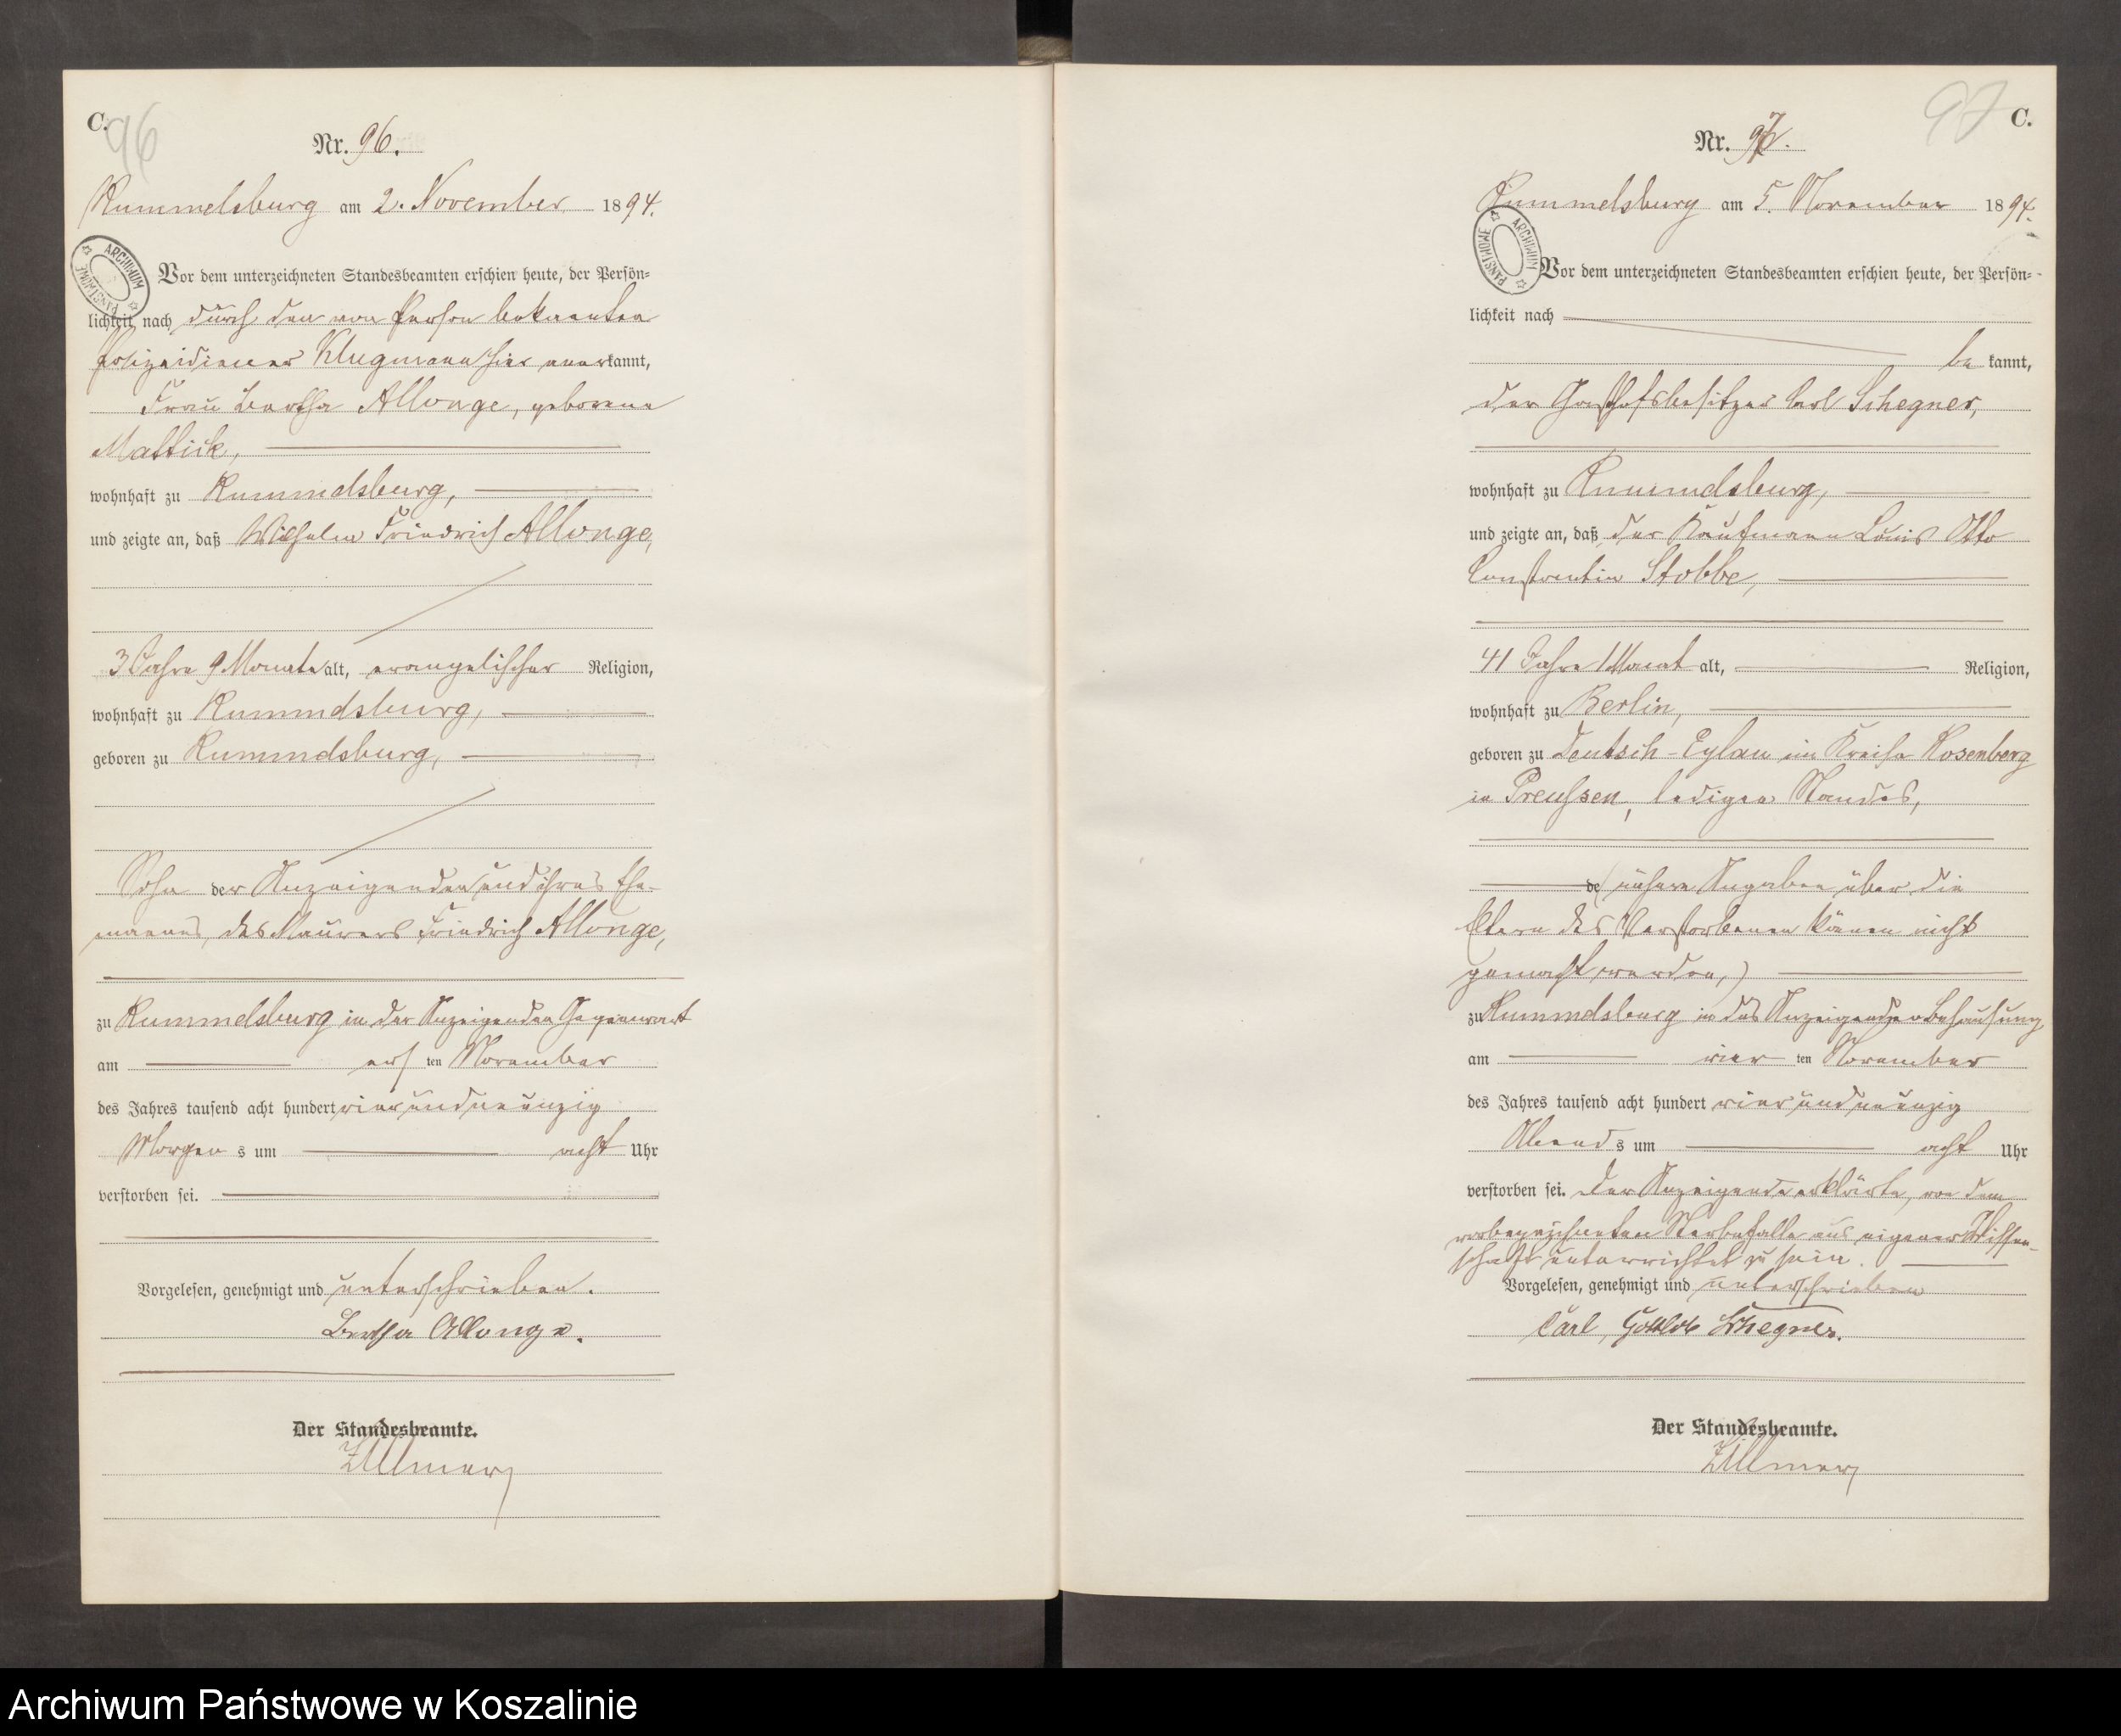 C.
96
Nr. 96.
Rummelsburg am 2. November 1894.
ARCHIWUM PAŃSTWOWE
Vor dem unterzeichneten Standesbeamten erschien heute, der Persön-
lichkeit nach durch den von Person bekannten
Polizeidiener Klugmann hier anerkannt,
Frau Bertha Allonge, geborene
Mattick,
wohnhaft zu Rummelsburg,
und zeigte an, daß Wilhelm Friedrich Allonge,
3 Jahre 9 Monate alt, evangelischer Religion,
wohnhaft zu Rummelsburg,
geboren zu Rummelsburg,
Sohn der Anzeigenden und ihres Ehe-
mannes, des Maurers Friedrich Allonge,
zu Rummelsburg in der Anzeigenden Gegenwart
am ersten November
des Jahres tausend acht hundert vierundneunzig
Morgens um acht Uhr
verstorben sei.
Vorgelesen, genehmigt und unterschrieben.
Bertha Allonge.
Der Standesbeamte.
Zillmer
97 C.
Nr. 97.
Rummelsburg am 5. November 1894.
ARCHIWUM PAŃSTWOWE
Vor dem unterzeichneten Standesbeamten erschien heute, der Persön-
lichkeit nach
bekannt,
der Gasthofsbesitzer Carl Schegner,
wohnhaft zu Rummelsburg,
und zeigte an, daß der Kaufmann Louis Otto
Constantin Stobbe,
41 Jahre 1 Monat alt, Religion,
wohnhaft zu Berlin,
geboren zu Deutsch-Eylau im Kreise Rosenberg
in Preußen, ledigen Standes,
de (nähere Angaben über die
Eltern des Verstorbenen können nicht
gemacht werden,)
zu Rummelsburg in des Anzeigenden Behausung
am vierten November
des Jahres tausend acht hundert vierundneunzig
Abends um acht Uhr
verstorben sei. Der Anzeigende erklärte, von dem
vorbezeichneten Sterbefalle aus eigener Wissen-
schaft unterrichtet zu sein.
Vorgelesen, genehmigt und unterschrieben
Carl Gottlob Schegner.
Der Standesbeamte.
Zillmer
Archiwum Państwowe w Koszalinie